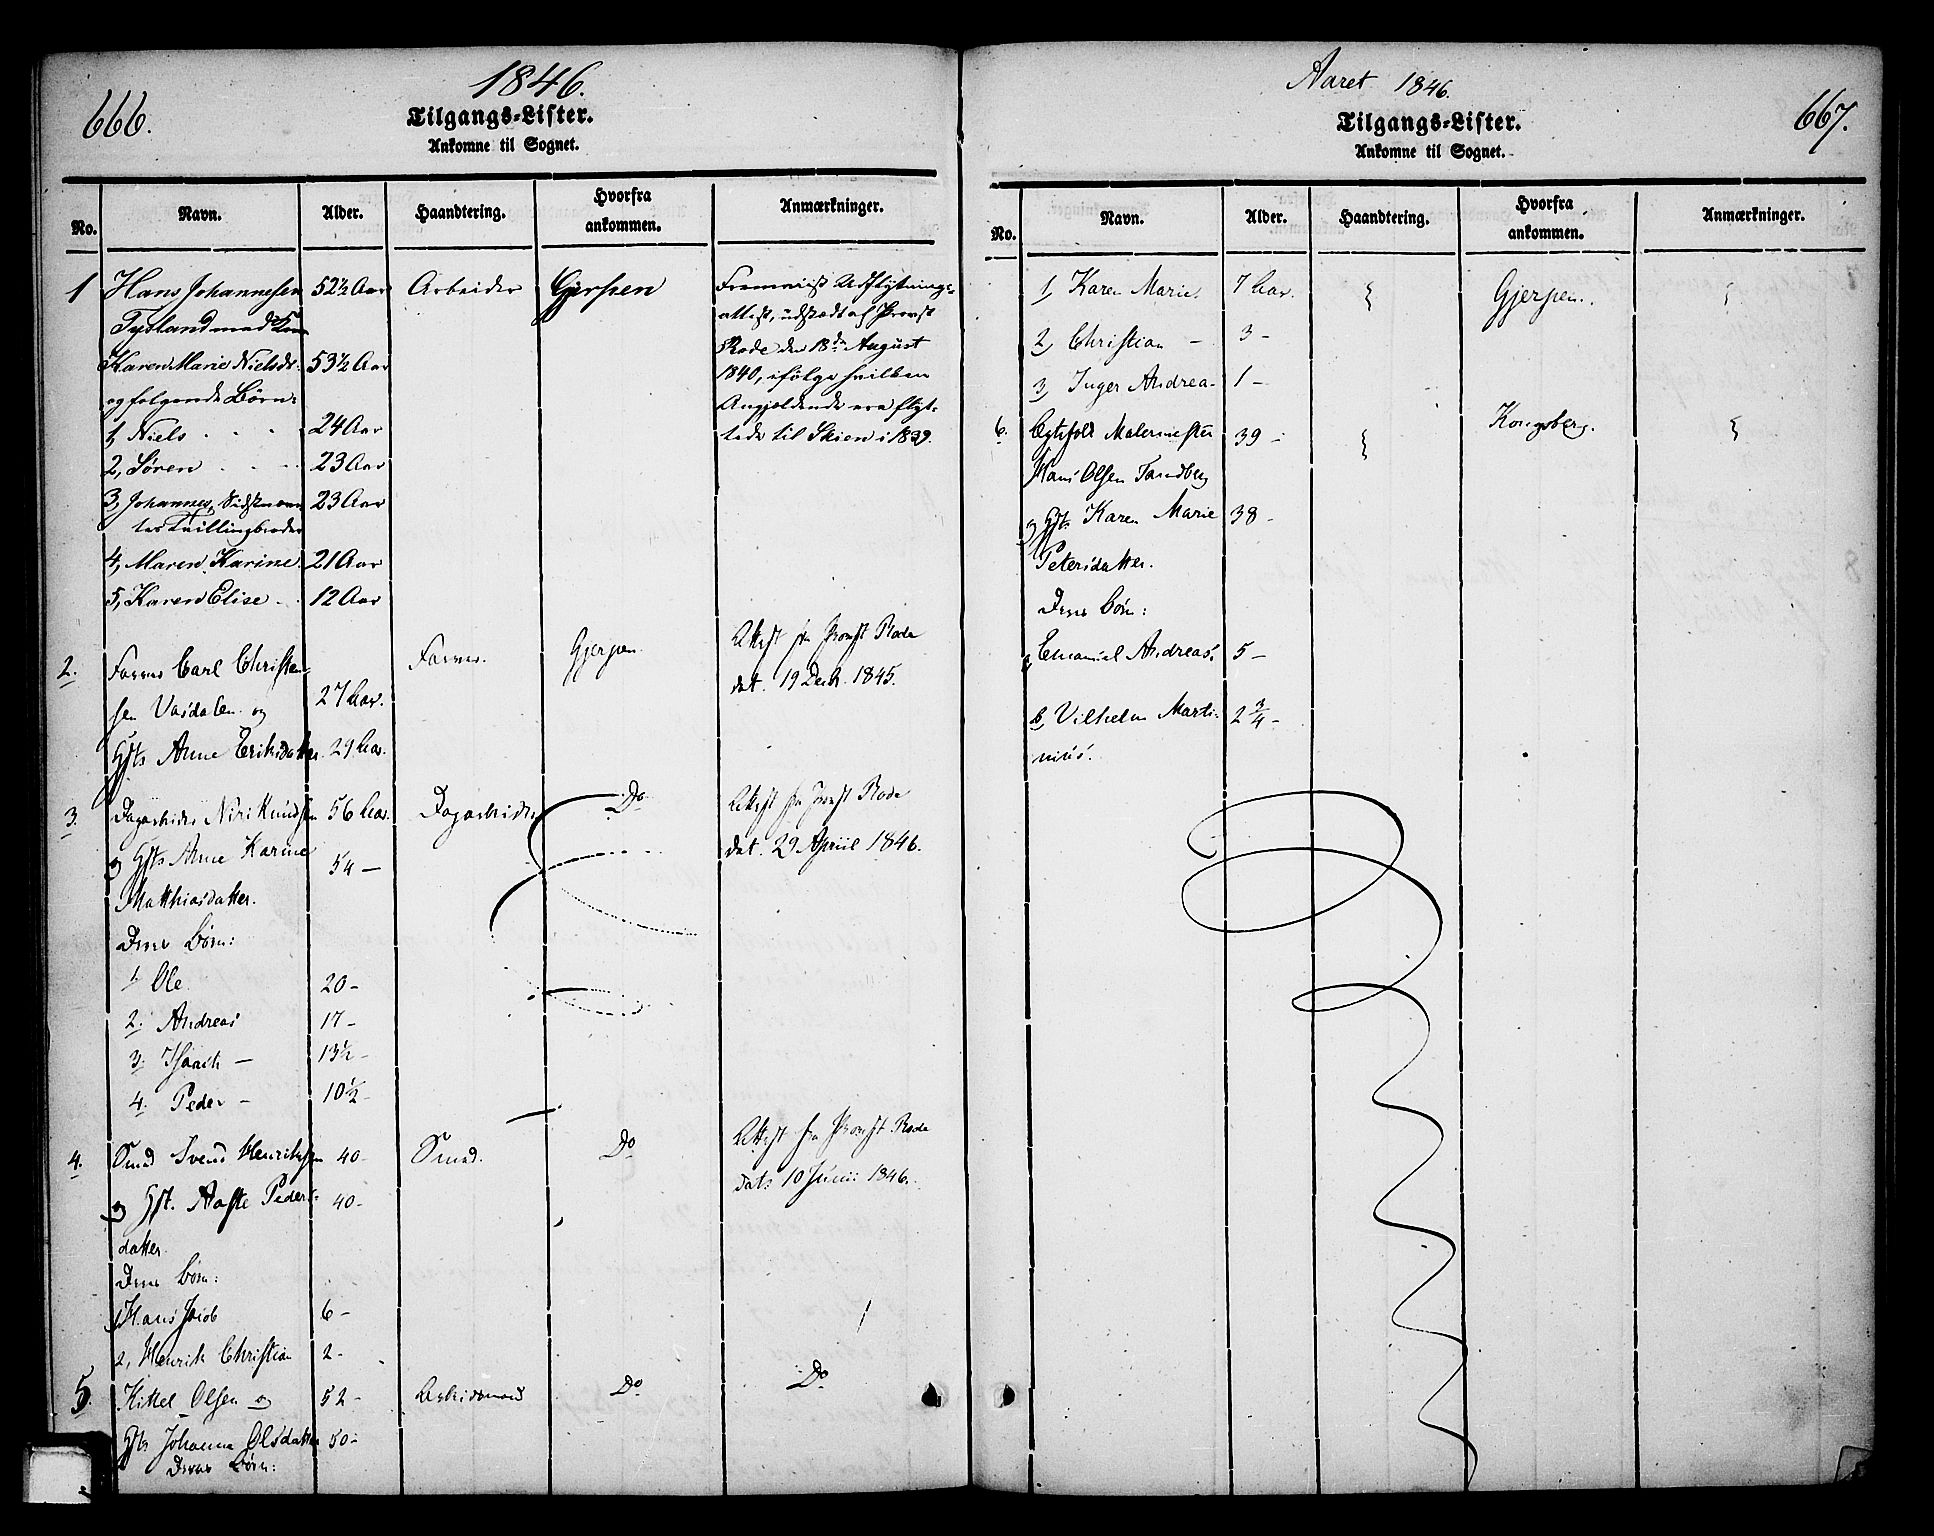 666.
1846.
Tilgangs-Lister.
Ankomne til Sognet.
No.
Navn.
Alder.
Haandtering.
Hvorfra
ankommen.
Anmærkninger.
1
Hans Johannesen
52½ Aar
Arbeider
Gjerpen
Tyeland med Kone
Karen Marie Nielsdr
53½ Aar
og følgende Børn:
1, Niels
24 Aar
2, Søren
23 Aar
3, Johannes, Sidstnævn
23 Aar
tes Tvillingbroder
4, Maren Karine
21 Aar
5, Karen Elise
12 Aar
Fremviist Udflytnings-
attest, udstædt af Provst
Rode den 18de August
1840, ifølge hvilken
Angjældende ere flyt-
tede til Skien i 1839.
2.
Carl Christen-
sen Vasdalen og
27 Aar.
Gjerpen
Attest fra Provst Rode
dat. 19 Decb. 1845.
Hst. Anne Eriksdatter
29 Aar.
3.
Dagarbeider Niri Knudsen
56 Aar.
Dagarbeider
Do
Attest fra Provst Rode
dat. 29 April 1846.
og Hst. Anne Karine
54 —
Matthiasdatter.
Deres Børn:
1. Ole
20 -
2. Andreas
17 -
3. Isaach —
13½ -
4. Peder -
10½ -
4.
Smed Svend Henriksen
40 -
Smed.
Do
Attest fra Provst Rode
dat. 10 Junii 1846.
og Hst. Aaste Peders-
40 -
datter.
Deres Børn:
1, Hans Jacob
6 -
2, Henrik Christian
2 -
5.
Kittel Olsen og
52 -
Arbeidsmand
Do
Do
Hst. Johanna Olsdatter
50 -
Deres Børn:
Aaret 1846.
667.
Tilgangs-Lister.
Ankomne til Sognet.
No.
Navn.
Alder.
Haandtering.
Hvorfra
ankommen.
Anmærkninger.
1, Karen Marie.
7 Aar.
Gjerpen.
2, Christian -
3 -
3, Inger Andrea -
1 -
6.
Malermester
39 -
Kongsberg.
Hans Olsen Tandberg
og Hst. Karen Marie
38 -
Petersdatter.
Deres Børn:
Emanuel Andreas.
5 -
Vilhelm Marti-
2¾ -
nius.